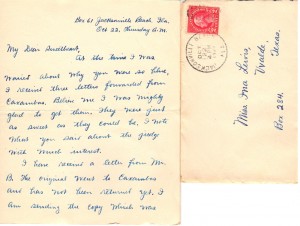 Box 61 Jacksonville Beach, Fla.
Oct 22, Thursday A.M.
My Dear Sweetheart,
As the time I was
worried about why you were so blue,
I received three letters forwarded from
Caxambas. Believe me I was mighty
glad to get them. They were just
as sweet as they could be. I note
What you said about the
with much interest.
I have received a letter from Mr.
B. The original went to Caxambas
and has not been returned yet. I
am sending the copy which was
Miss Ima Lewis,
Uvalde,
Texas.
Box 224,